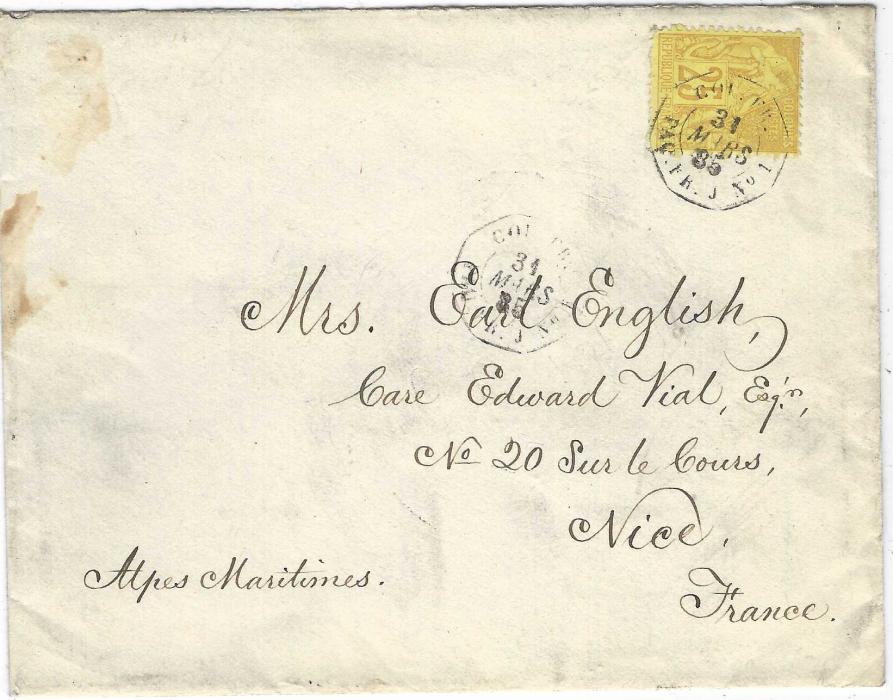 25
RÉPUBLIQUE
COLONIES
COL. FR.
31
MARS
85
PAQ. FR. J Nº 1
COL. FR.
31
MARS
85
R. J Nº
Mrs. Earl English,
Care Edward Vial, Esq'n,
Nº 20 Sur le Cours,
Nice,
Alpes Maritimes.
France.